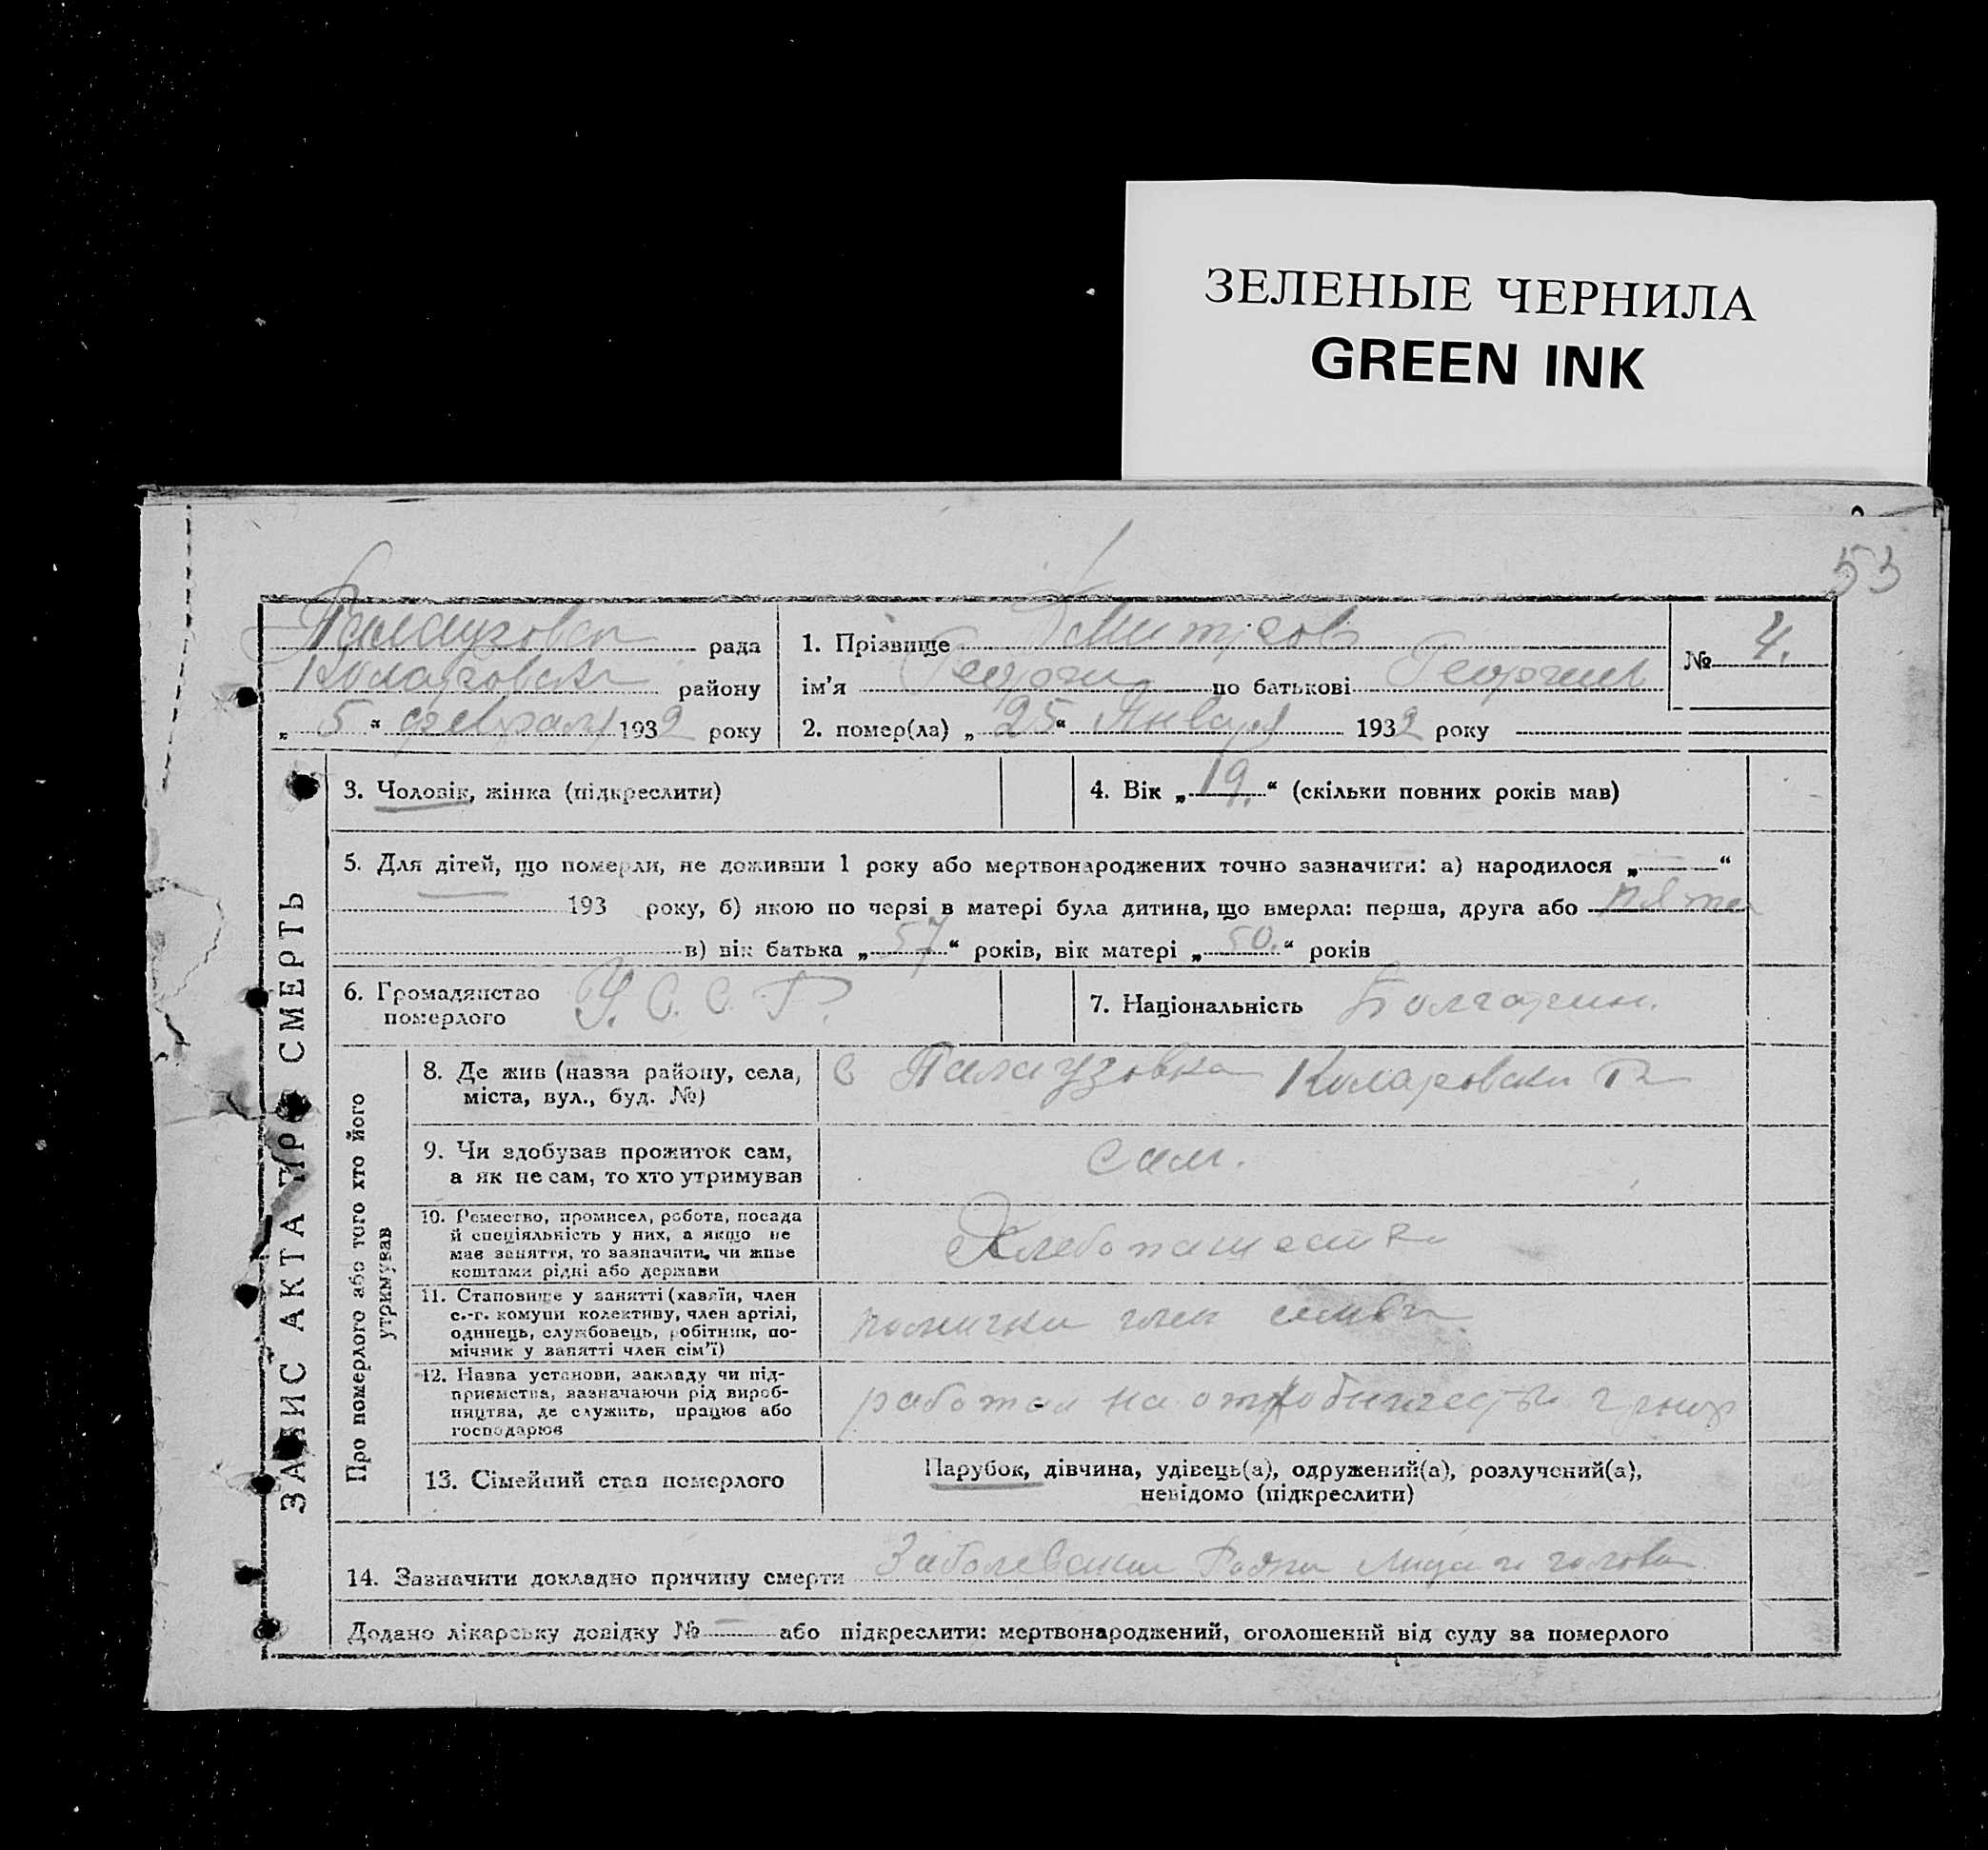 ЗЕЛЕНЫЕ ЧЕРНИЛА
GREEN INK
53
рада
району
„ 5 “ февраля 1932 року
1. Прізвище Дмитров
ім'я Георги по батькові Георгиев
2. помер(ла) „ 25 “ Января 1932 року
№ 4.
ЗАПИС АКТА ПРО СМЕРТЬ
3. Чоловік, жінка (підкреслити)
4. Вік „ 19. “ (скільки повних років мав)
5. Для дітей, що померли, не доживши 1 року або мертвонароджених точно зазначити: а) народилося „ — “
193 року, б) якою по черзі в матері була дитина, що вмерла: перша, друга або пятая
в) вік батька „ 57 “ років, вік матері „ 50. “ років
6. Громадянство
померлого У. С. С. Р.
7. Національність Болгарин.
Про померлого або того хто його
утримував
8. Де жив (назва району, села,
міста, вул., буд. №)
с Палаузовка Коларовски Р
9. Чи здобував прожиток сам,
а як не сам, то хто утримував
сам.
10. Ремество, промисел, робота, посада
й спеціяльність у них, а якщо не
має заняття, то зазначити, чи живе
коштами рідні або держави
11. Становище у занятті (хазяїн, член
с.-г. комуни колективу, член артілі,
одинець, службовець, робітник, по-
мічник у занятті член сім'ї)
член семьи
12. Назва установи, закладу чи під-
приємства, зазначаючи рід вироб-
ництва, де служить, працює або
господарює
работал на
13. Сімейний стан померлого
Парубок, дівчина, удівець(а), одружений(а), розлучений(а),
невідомо (підкреслити)
14. Зазначити докладно причину смерти Заболевания лица и голова
Додано лікарську довідку № — або підкреслити: мертвонароджений, оголошений від суду за померлого